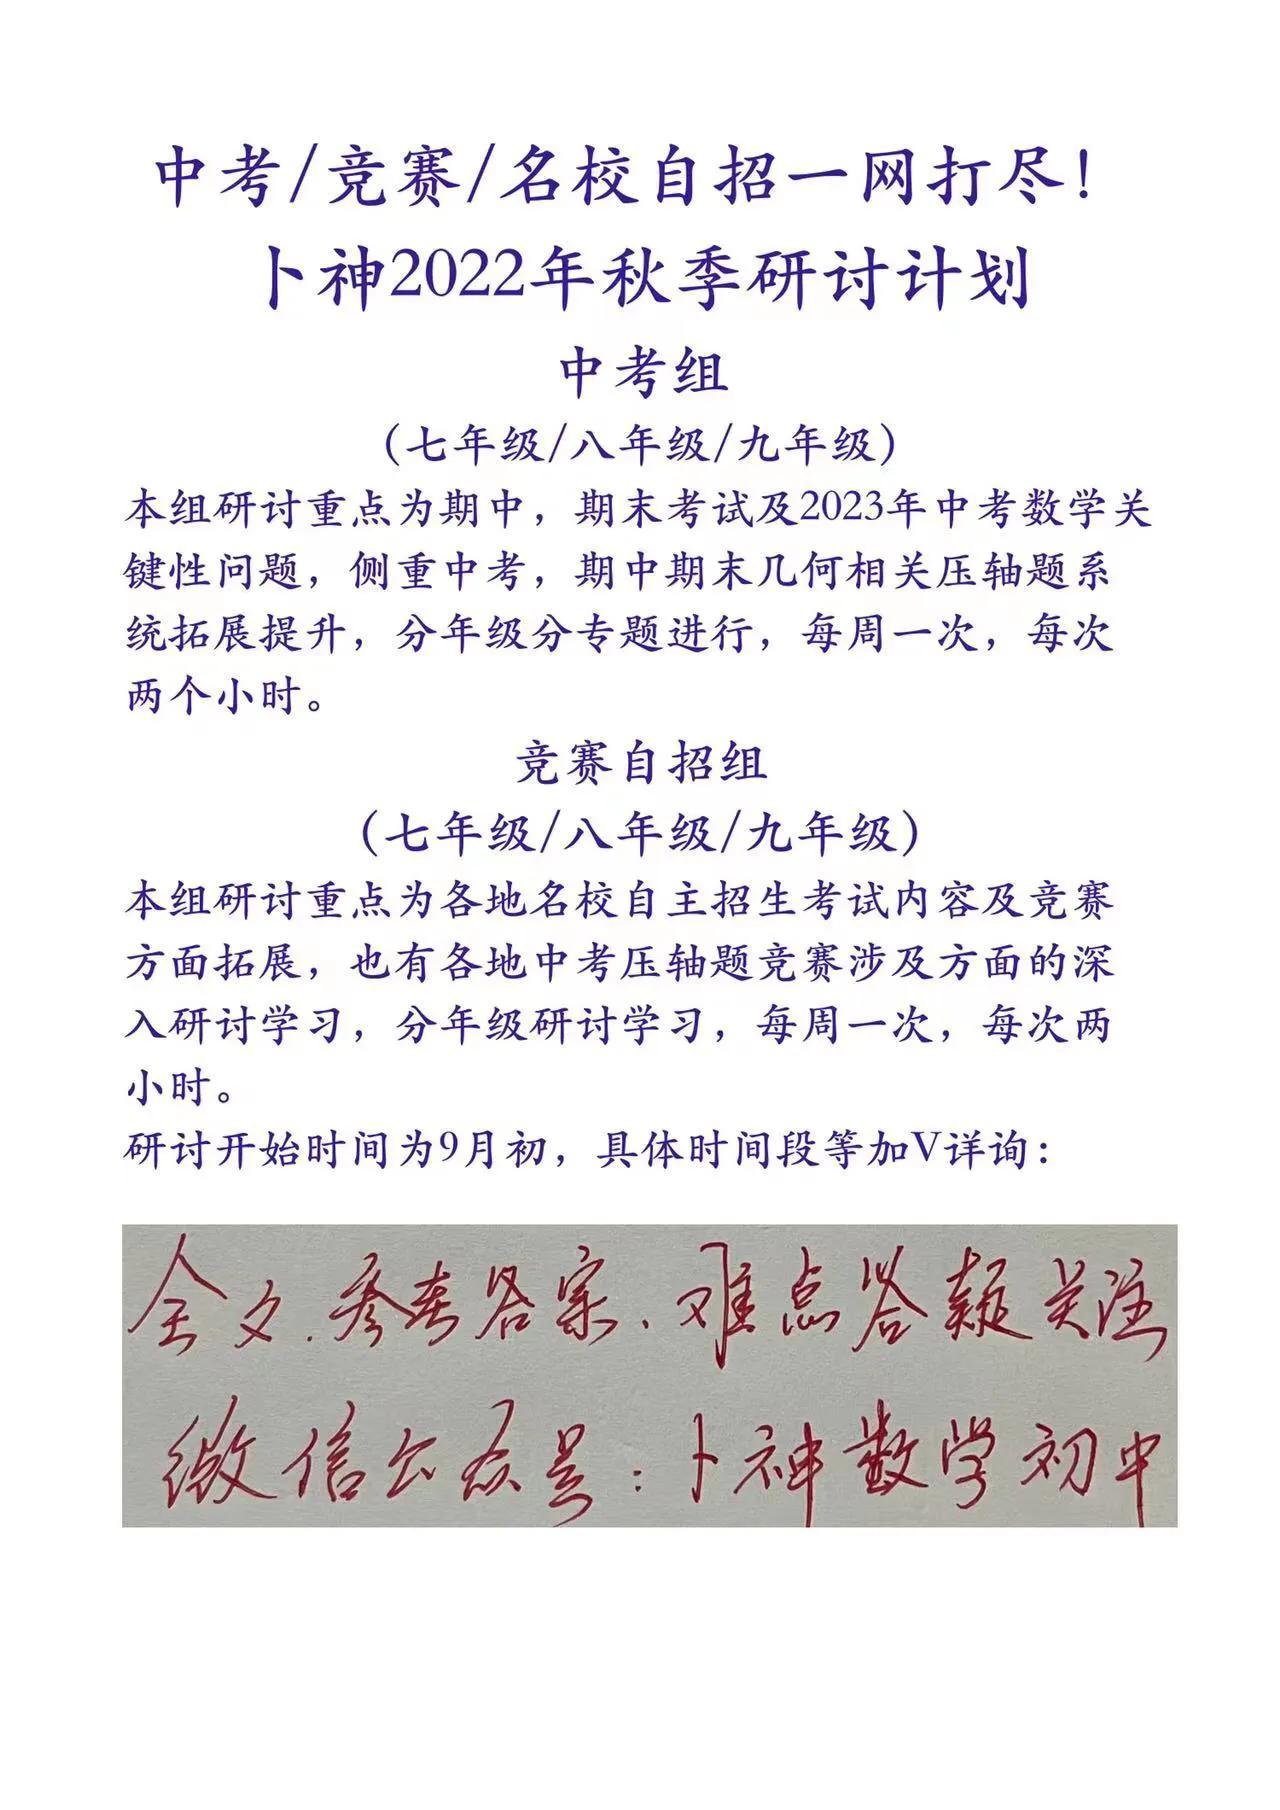 中考/竞赛/名校自招一网打尽！
卜神2022年秋季研讨计划
中考组
（七年级/八年级/九年级）
本组研讨重点为期中，期末考试及2023年中考数学关
键性问题，侧重中考，期中期末几何相关压轴题系
统拓展提升，分年级分专题进行，每周一次，每次
两个小时。
竞赛自招组
（七年级/八年级/九年级）
本组研讨重点为各地名校自主招生考试内容及竞赛
方面拓展，也有各地中考压轴题竞赛涉及方面的深
入研讨学习，分年级研讨学习，每周一次，每次两
小时。
研讨开始时间为9月初，具体时间段等加V详询：
全文.参考答案、难点答疑关注
微信公众号：卜神数学初中